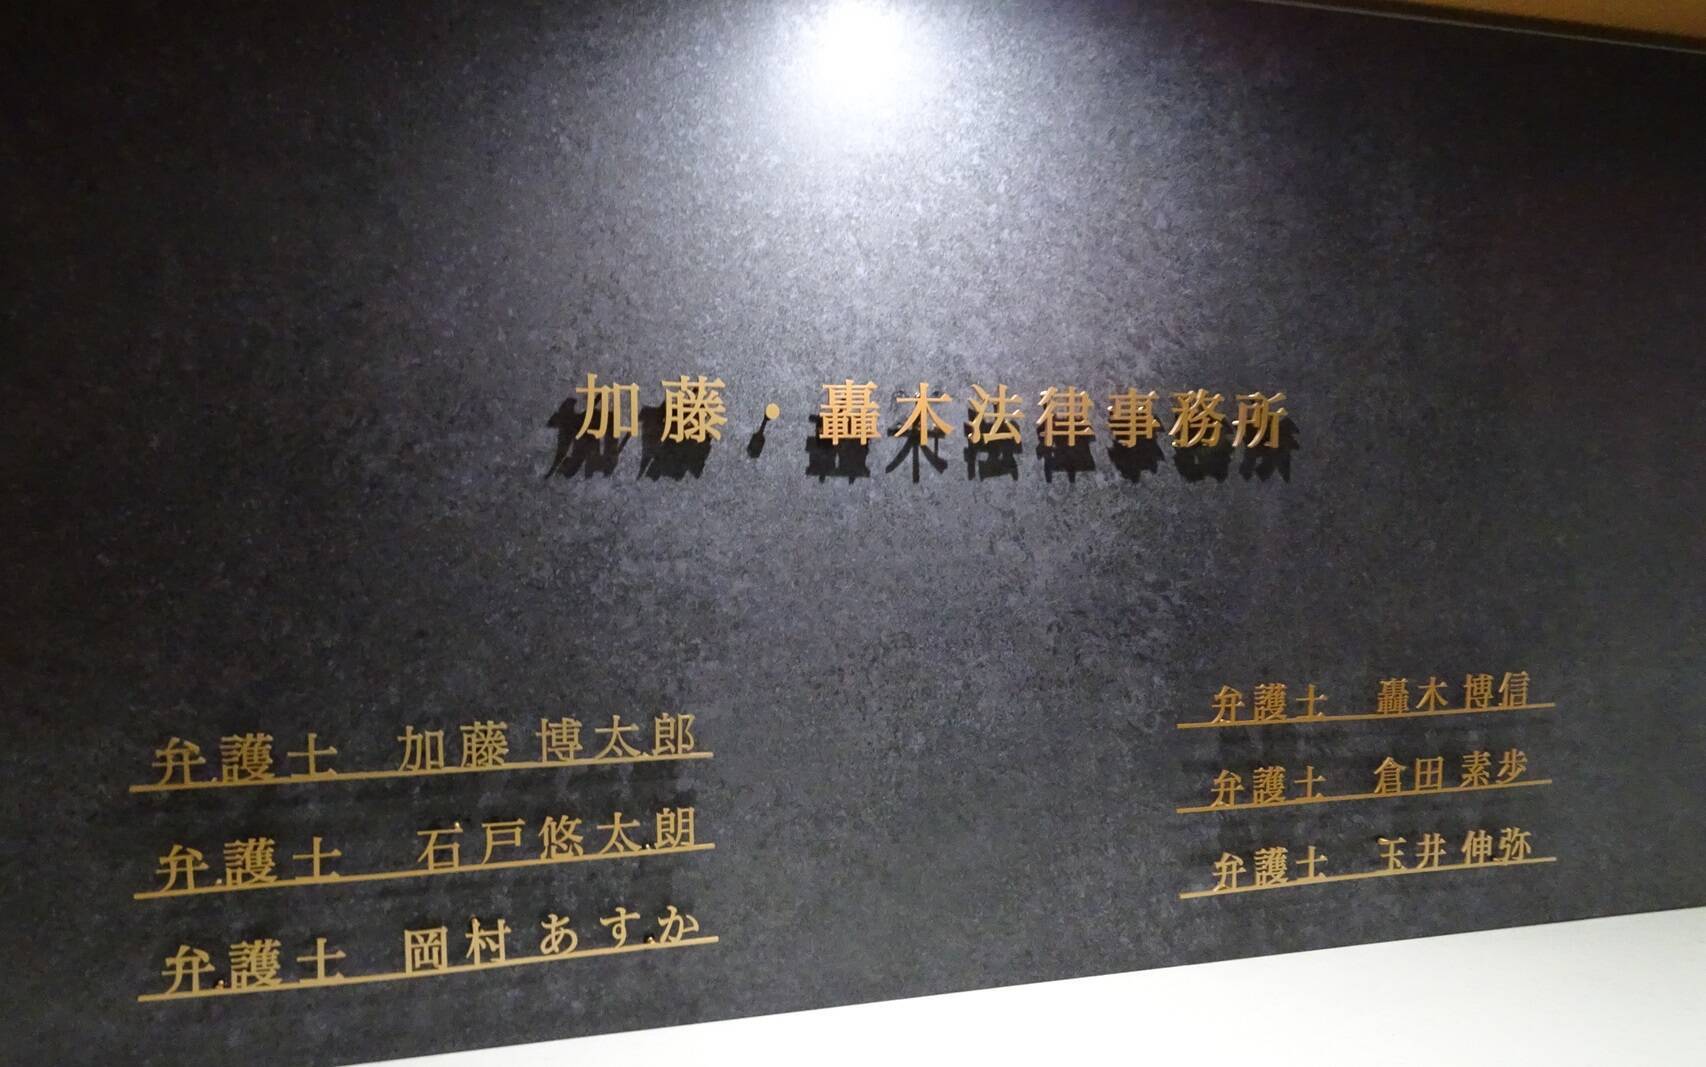 加藤・轟木法律事務所
弁護士 加藤 博太郎
弁護士 石戸悠太朗
弁護士 岡村 あすか
弁護士 轟木 博信
弁護士 倉田 素歩
弁護士 玉井 伸弥